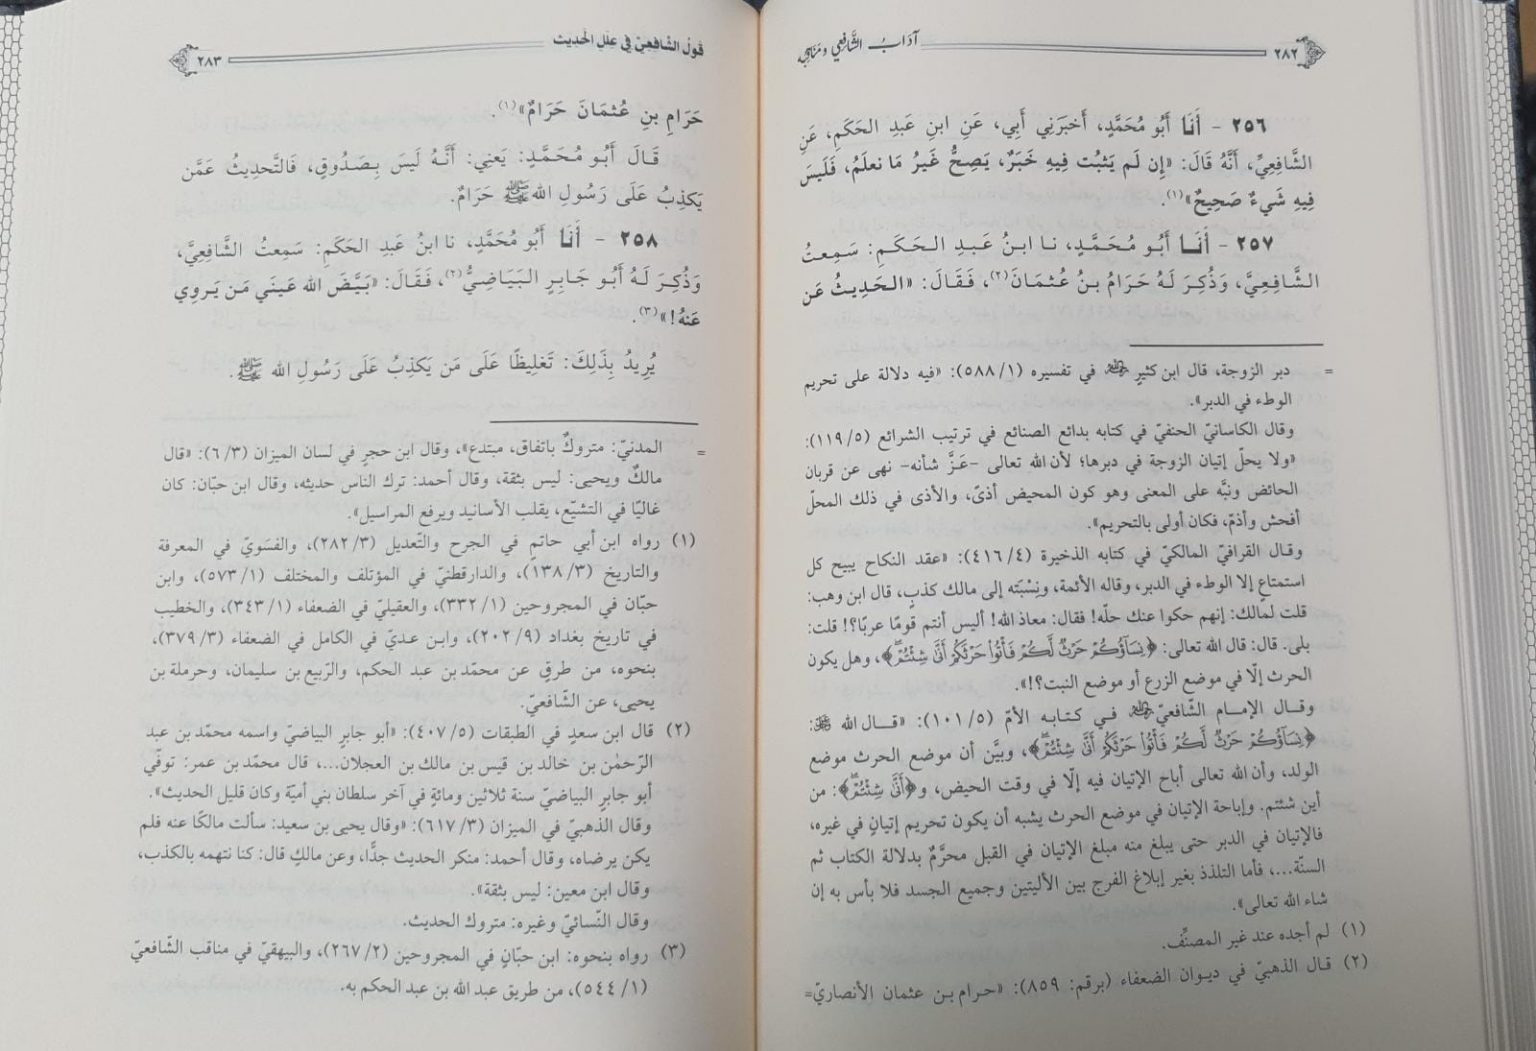 ٢٨٢
آدَابُ الشَّافِعِي وَمَنَاقِبُه
٢٥٦ - أَنَا أَبُو مُحَمَّدٍ، أَخبَرَنِي أَبِي، عَنِ ابنِ عَبدِ الحَكَمِ، عَنِ
الشَّافِعِيِّ، أَنَّهُ قَالَ: «إِن لَم يَثبُت فِيهِ خَبَرٌ، يَصِحُّ غَيرُ مَا نعلَمُ، فَلَيسَ
فِيهِ شَيءٌ صَحِيحٌ»(١).
٢٥٧ - أَنَا أَبُو مُحَمَّدٍ، نا ابنُ عَبدِ الحَكَمِ: سَمِعتُ
الشَّافِعِيَّ، وَذُكِرَ لَهُ حَرَامُ بنُ عُثمَانَ(٢)، فَقَالَ: «الحَدِيثُ عَن
= دبر الزوجة، قال ابن كثيرٍ رحمه الله في تفسيره (١/ ٥٨٨): «فيه دلالة على تحريم
الوطء في الدبر».
وقال الكاسانيّ الحنفيّ في كتابه بدائع الصنائع في ترتيب الشرائع (٥/ ١١٩):
«ولا يحلّ إتيان الزوجة في دبرها؛ لأن الله تعالى -عَزَّ شأنه- نهى عن قربان
الحائض ونبَّه على المعنى وهو كون المحيض أذىً، والأذى في ذلك المحلّ
أفحش وأذمّ، فكان أولى بالتحريم».
وقال القرافيّ المالكيّ في كتابه الذخيرة (٤/ ٤١٦): «عقد النكاح يبيح كل
استمتاعٍ إلا الوطء في الدبر، وقاله الأئمة، ونِسْبَته إلى مالك كذبٍ، قال ابن وهب:
قلت لمالك: إنهم حكوا عنك حلّه! فقال: معاذ الله! أليس أنتم قومًا عربًا؟! قلت:
بلى. قال: قال الله تعالى: ﴿نِسَآؤُكُمْ حَرْثٌ لَّكُمْ فَأْتُوا۟ حَرْثَكُمْ أَنَّىٰ شِئْتُمْ﴾، وهل يكون
الحرث إلّا في موضع الزرع أو موضع النبت؟!».
وقال الإمام الشّافعيّ رحمه الله في كتابه الأمّ (٥/ ١٠١): «قال الله ﷿:
﴿نِسَآؤُكُمْ حَرْثٌ لَّكُمْ فَأْتُوا۟ حَرْثَكُمْ أَنَّىٰ شِئْتُمْ﴾، وبيَّن أن موضع الحرث موضع
الولد، وأن الله تعالى أباح الإتيان فيه إلّا في وقت الحيض، و﴿أَنَّىٰ شِئْتُمْ﴾: من
أين شئتم. وإباحة الإتيان في موضع الحرث يشبه أن يكون تحريم إتيانٍ في غيره،
فالإتيان في الدبر حتى يبلغ منه مبلغ الإتيان في القبل محرَّمٌ بدلالة الكتاب ثم
السنّة...، فأما التلذذ بغير إبلاغ الفرج بين الأليتين وجميع الجسد فلا بأس به إن
شاء الله تعالى».
(١) لم أجده عند غير المصنِّف.
(٢) قال الذهبيّ في ديوان الضعفاء (برقم: ٨٥٩): «حرام بن عثمان الأنصاريّ=
قَولُ الشَّافِعِيّ فِي عِلَلِ الحَدِيث
٢٨٣
حَرَامِ بنِ عُثمَانَ حَرَامٌ»(١).
قَالَ أَبُو مُحَمَّدٍ: يَعنِي: أَنَّهُ لَيسَ بِصَدُوقٍ، فَالتَّحدِيثُ عَمَّن
يَكذِبُ عَلَى رَسُولِ الله ﷺ حَرَامٌ.
٢٥٨ - أَنَا أَبُو مُحَمَّدٍ، نا ابنُ عَبدِ الحَكَمِ: سَمِعتُ الشَّافِعِيَّ،
وَذُكِرَ لَهُ أَبُو جَابِرٍ البَيَاضِيُّ(٢)، فَقَالَ: «بَيَّضَ الله عَينَي مَن يَروِي
عَنهُ!»(٣).
يُرِيدُ بِذَلِكَ: تَغلِيظًا عَلَى مَن يَكذِبُ عَلَى رَسُولِ الله ﷺ.
= المدنيّ: متروكٌ باتفاق، مبتدع»، وقال ابن حجرٍ في لسان الميزان (٣/ ٦): «قال
مالكٌ ويحيى: ليس بثقة، وقال أحمد: ترك الناس حديثه، وقال ابن حبّان: كان
غاليًا في التشيّع، يقلب الأسانيد ويرفع المراسيل».
(١) رواه ابن أبي حاتمٍ في الجرح والتّعديل (٣/ ٢٨٢)، والفسَويّ في المعرفة
والتاريخ (٣/ ١٣٨)، والدارقطنيّ في المؤتلف والمختلف (١/ ٥٧٣)، وابن
حبّان في المجروحين (١/ ٣٣٢)، والعقيليّ في الضعفاء (١/ ٣٤٣)، والخطيب
في تاريخ بغداد (٩/ ٢٠٢)، وابن عديّ في الكامل في الضعفاء (٣/ ٣٧٩)،
بنحوه، من طرقٍ عن محمّد بن عبد الحكم، والرّبيع بن سليمان، وحرملة بن
يحيى، عن الشّافعيّ.
(٢) قال ابن سعدٍ في الطبقات (٥/ ٤٠٧): «أبو جابرٍ البياضيّ واسمه محمّد بن عبد
الرّحمٰن بن خالد بن قيس بن مالك بن العجلان...، قال محمّد بن عمر: توفّي
أبو جابرٍ البياضيّ سنة ثلاثين ومائةٍ في آخر سلطان بني أميّة وكان قليل الحديث».
وقال الذهبيّ في الميزان (٣/ ٦١٧): «وقال يحيى بن سعيد: سألت مالكًا عنه فلم
يكن يرضاه، وقال أحمد: منكر الحديث جدًّا، وعن مالكٍ قال: كنا نتهمه بالكذب،
وقال ابن معين: ليس بثقة».
وقال النّسائيّ وغيره: متروك الحديث.
(٣) رواه بنحوه: ابن حبّانٍ في المجروحين (٢/ ٢٦٧)، والبيهقيّ في مناقب الشّافعيّ
(١/ ٥٤٤)، من طريق عبد الله بن عبد الحكم به.